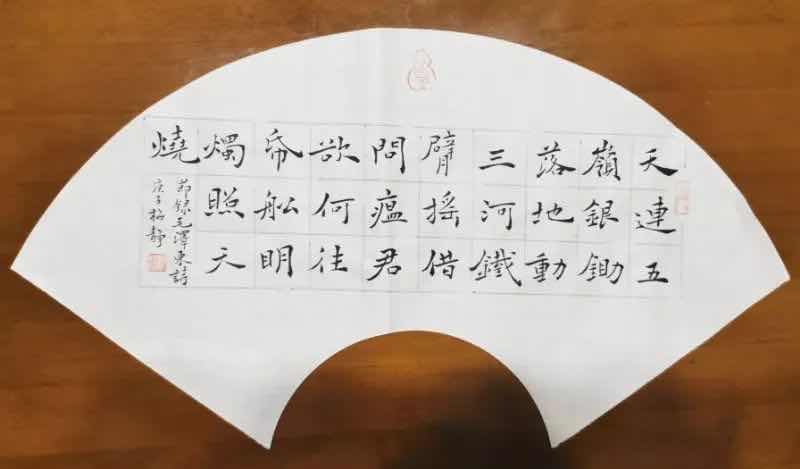 天連五
嶺銀鋤
落地動
三河鐵
臂搖借
問瘟君
欲何往
帋舩明
燭照天
燒
節録毛澤東詩
庚子梅靜